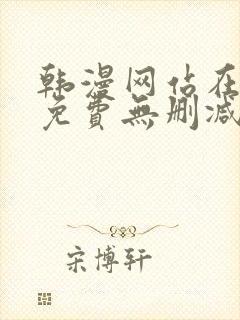 韩漫网站在
免費無删减
宋博轩